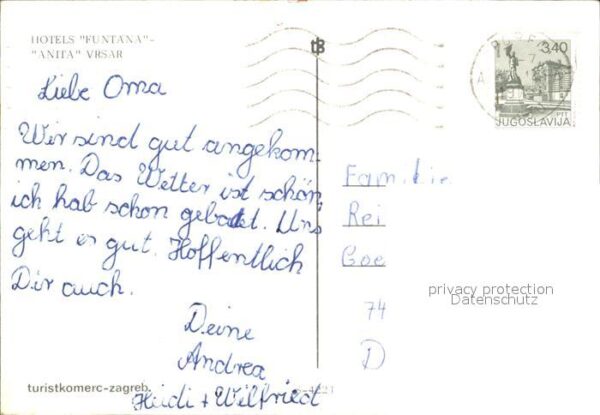 HOTELS "FUNTANA"-
"ANITA" VRSAR
tB
3,40
PTT
JUGOSLAVIJA
Liebe Oma
Wir sind gut angekom-
men. Das Wetter ist schön,
ich hab schon gebadet. Uns
geht es gut. Hoffentlich
Dir auch.
Deine
Andrea
Heidi + Wilfried
Familie
Rei
Goe
74
D
privacy protection
Datenschutz
turistkomerc-zagreb.